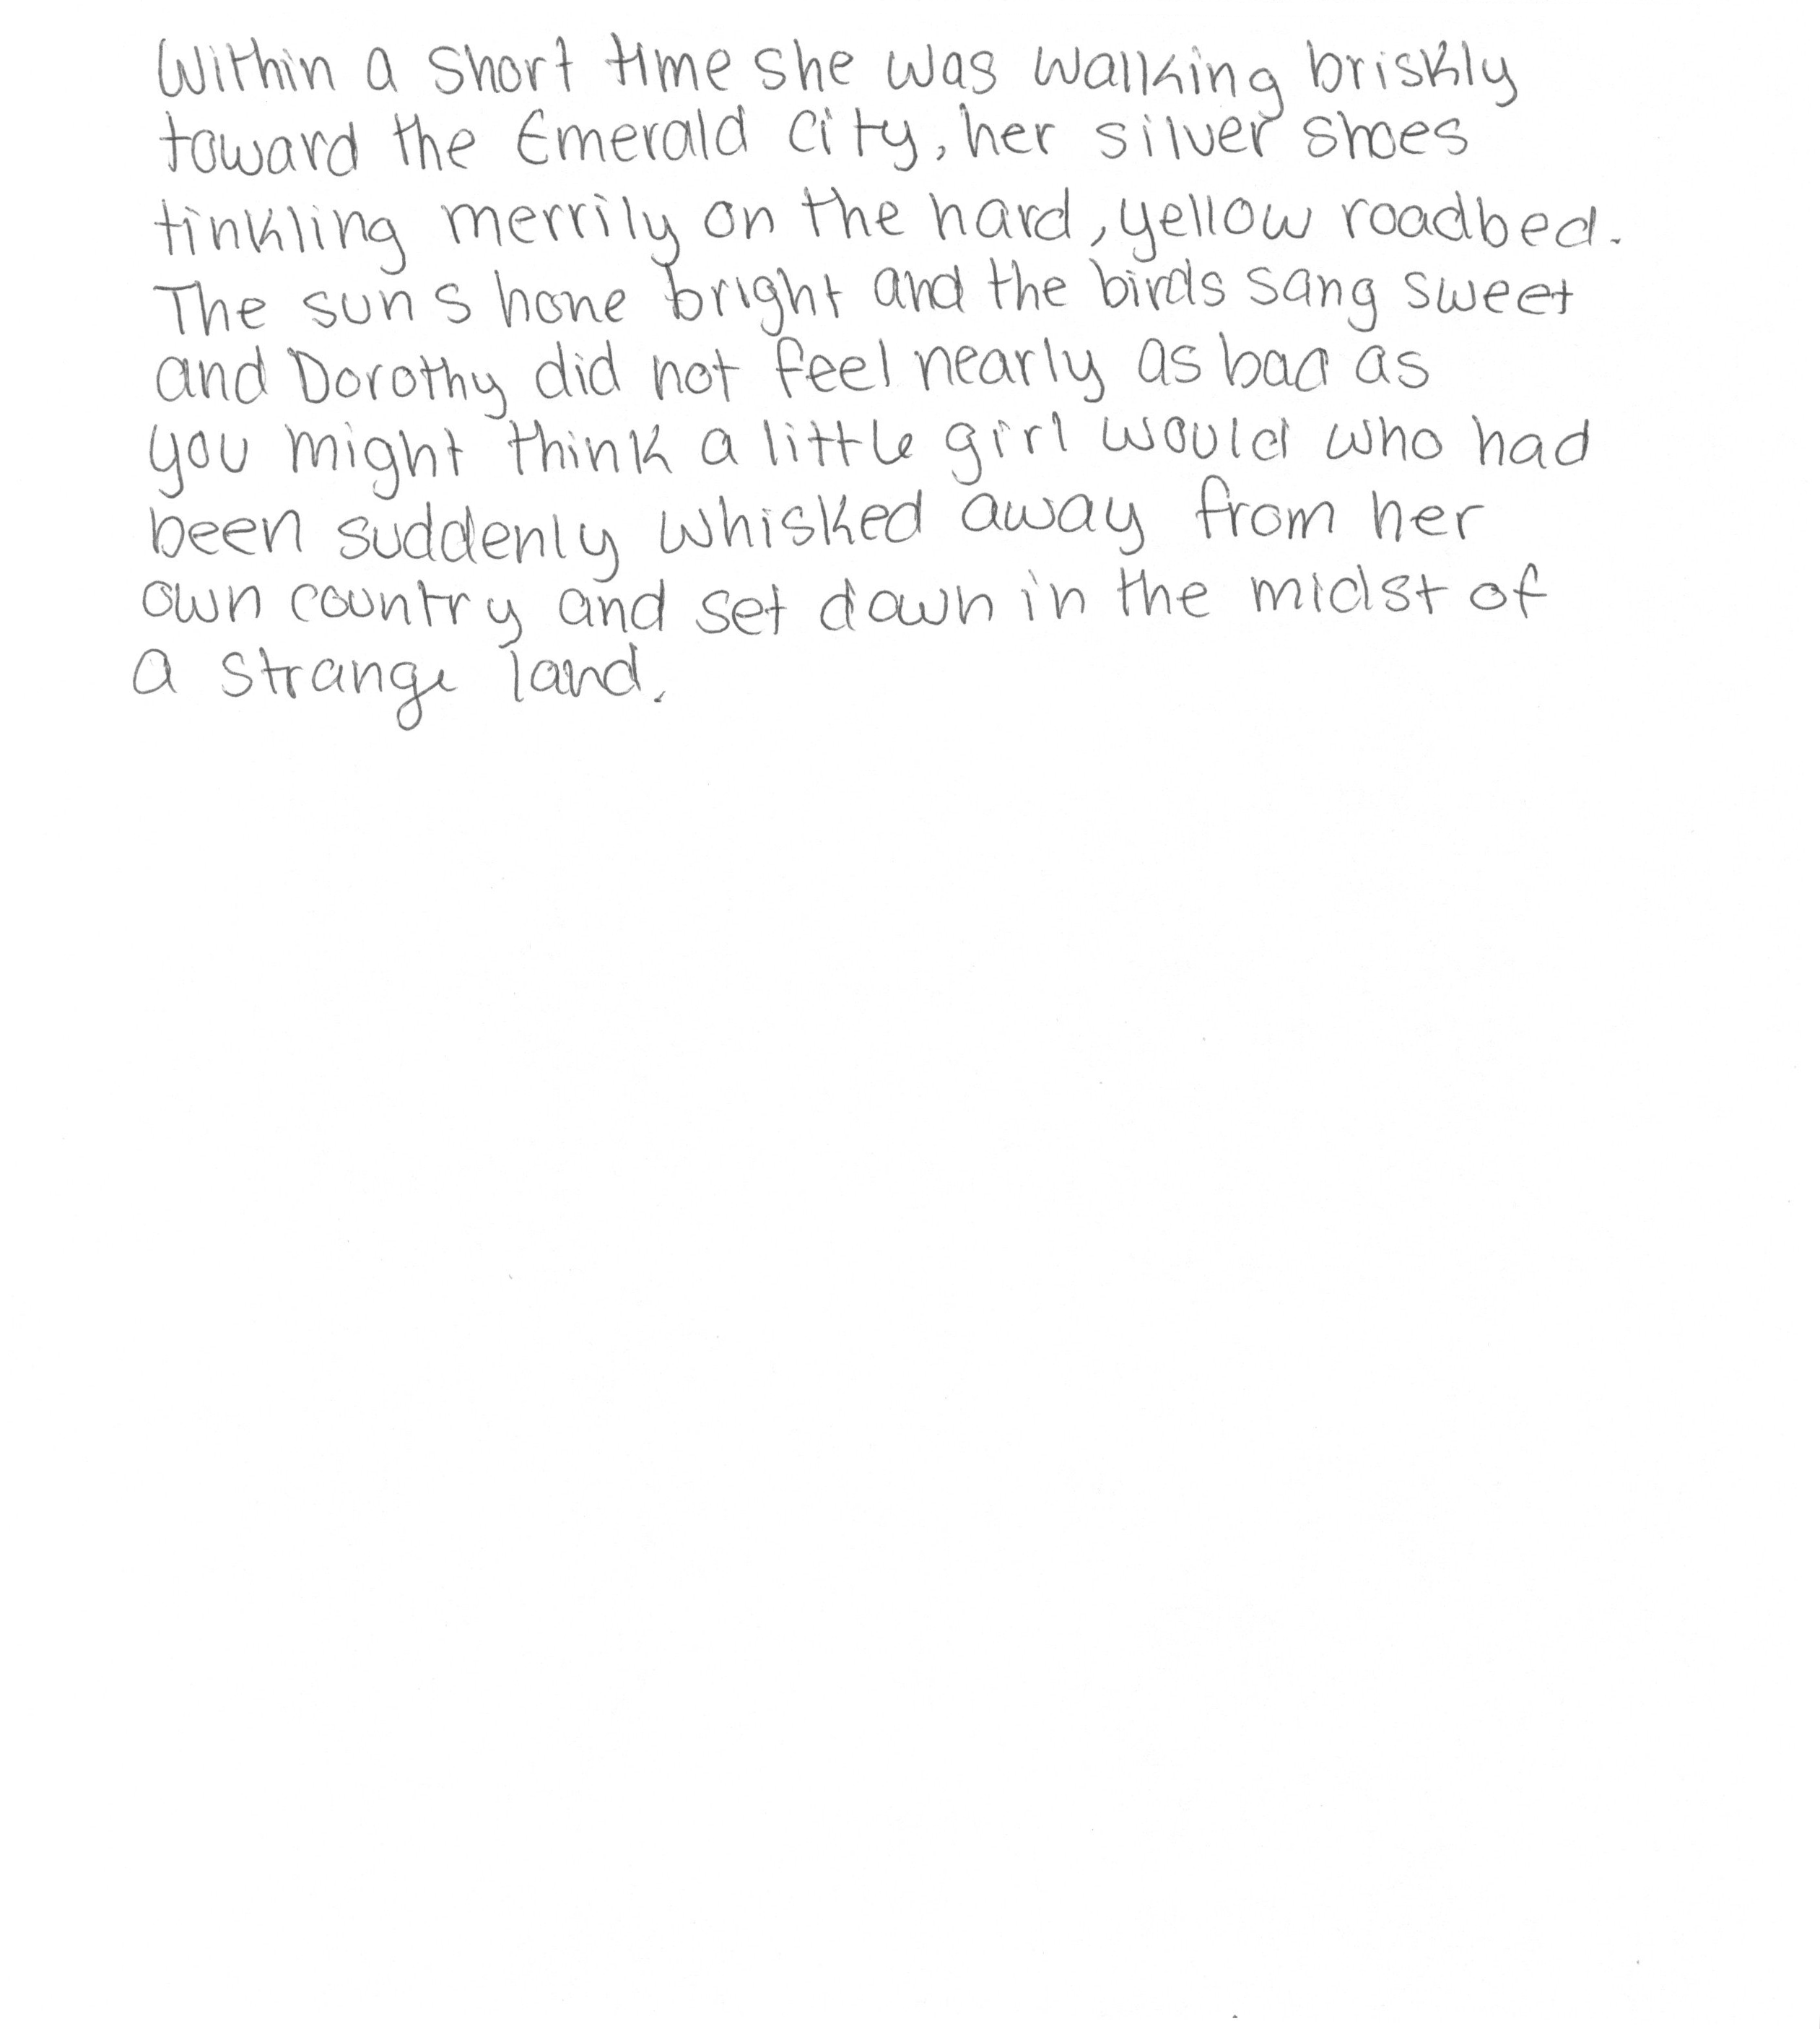 Within a short time she was walking briskly
toward the Emerald City, her silver shoes
tinkling merrily on the hard, yellow roadbed.
The sun shone bright and the birds sang sweet
and Dorothy did not feel nearly as bad as
you might think a little girl would who had
been suddenly whisked away from her
own country and set down in the midst of
a strange land.